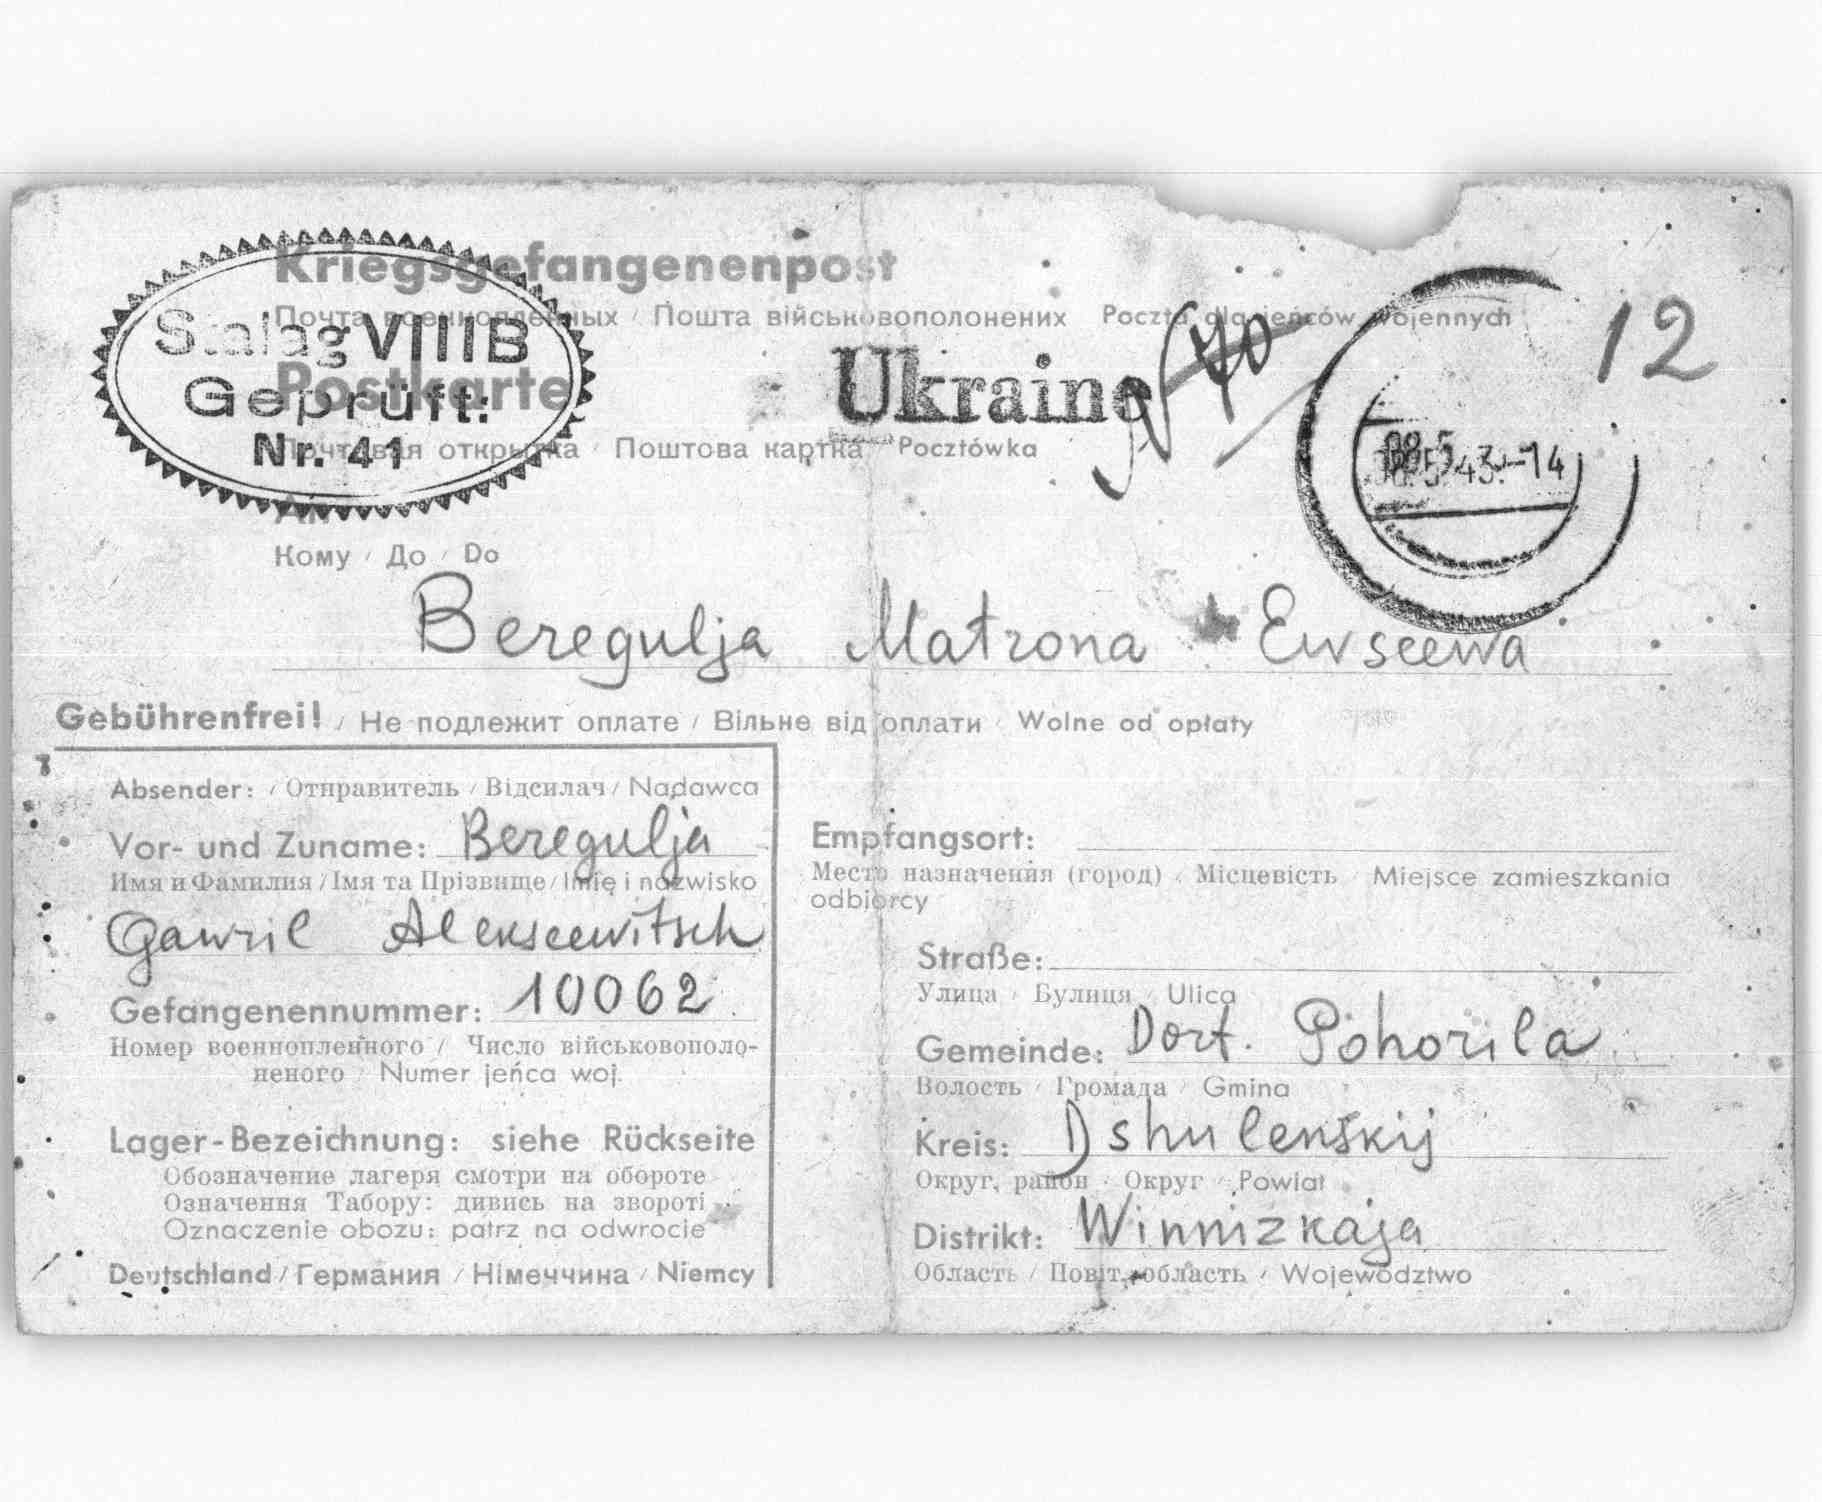 Kriegsgefangenenpost
Почта военнопленных / Пошта військовополонених Poczta dla jeńców wojennych
Stalag VIIIB
Geprüft:
Nr. 41
Postkarte
Ukraine
N 40
12
Почтовая открытка / Поштова картка / Pocztówka
8.5.43.-14
An
Кому / До / Do
Beregulja Matrona Ewseewa
Gebührenfrei! / Не подлежит оплате / Вільне від оплати / Wolne od opłaty
Absender: / Отправитель / Відсилач / Nadawca
Vor- und Zuname: Beregulja
Имя и Фамилия / Імя та Прізвище / Imię i nazwisko
Gawril Alekseewitsch
Gefangenennummer: 10062
Номер военнопленного / Число військовополо-
неного / Numer jeńca woj.
Lager-Bezeichnung: siehe Rückseite
Обозначение лагеря смотри на обороте
Означення Табору: дивись на звороті
Oznaczenie obozu: patrz na odwrocie
Deutschland / Германия / Німеччина / Niemcy
Empfangsort:
Место назначения (город) / Місцевість / Miejsce zamieszkania
odbiorcy
Straße:
Улица / Булиця / Ulica
Gemeinde: Dorf. Pohorila
Волость / Громада / Gmina
Kreis: Dshulenskij
Округ, район / Округ / Powiat
Distrikt: Winnizkaja
Область / Повіт, область / Województwo